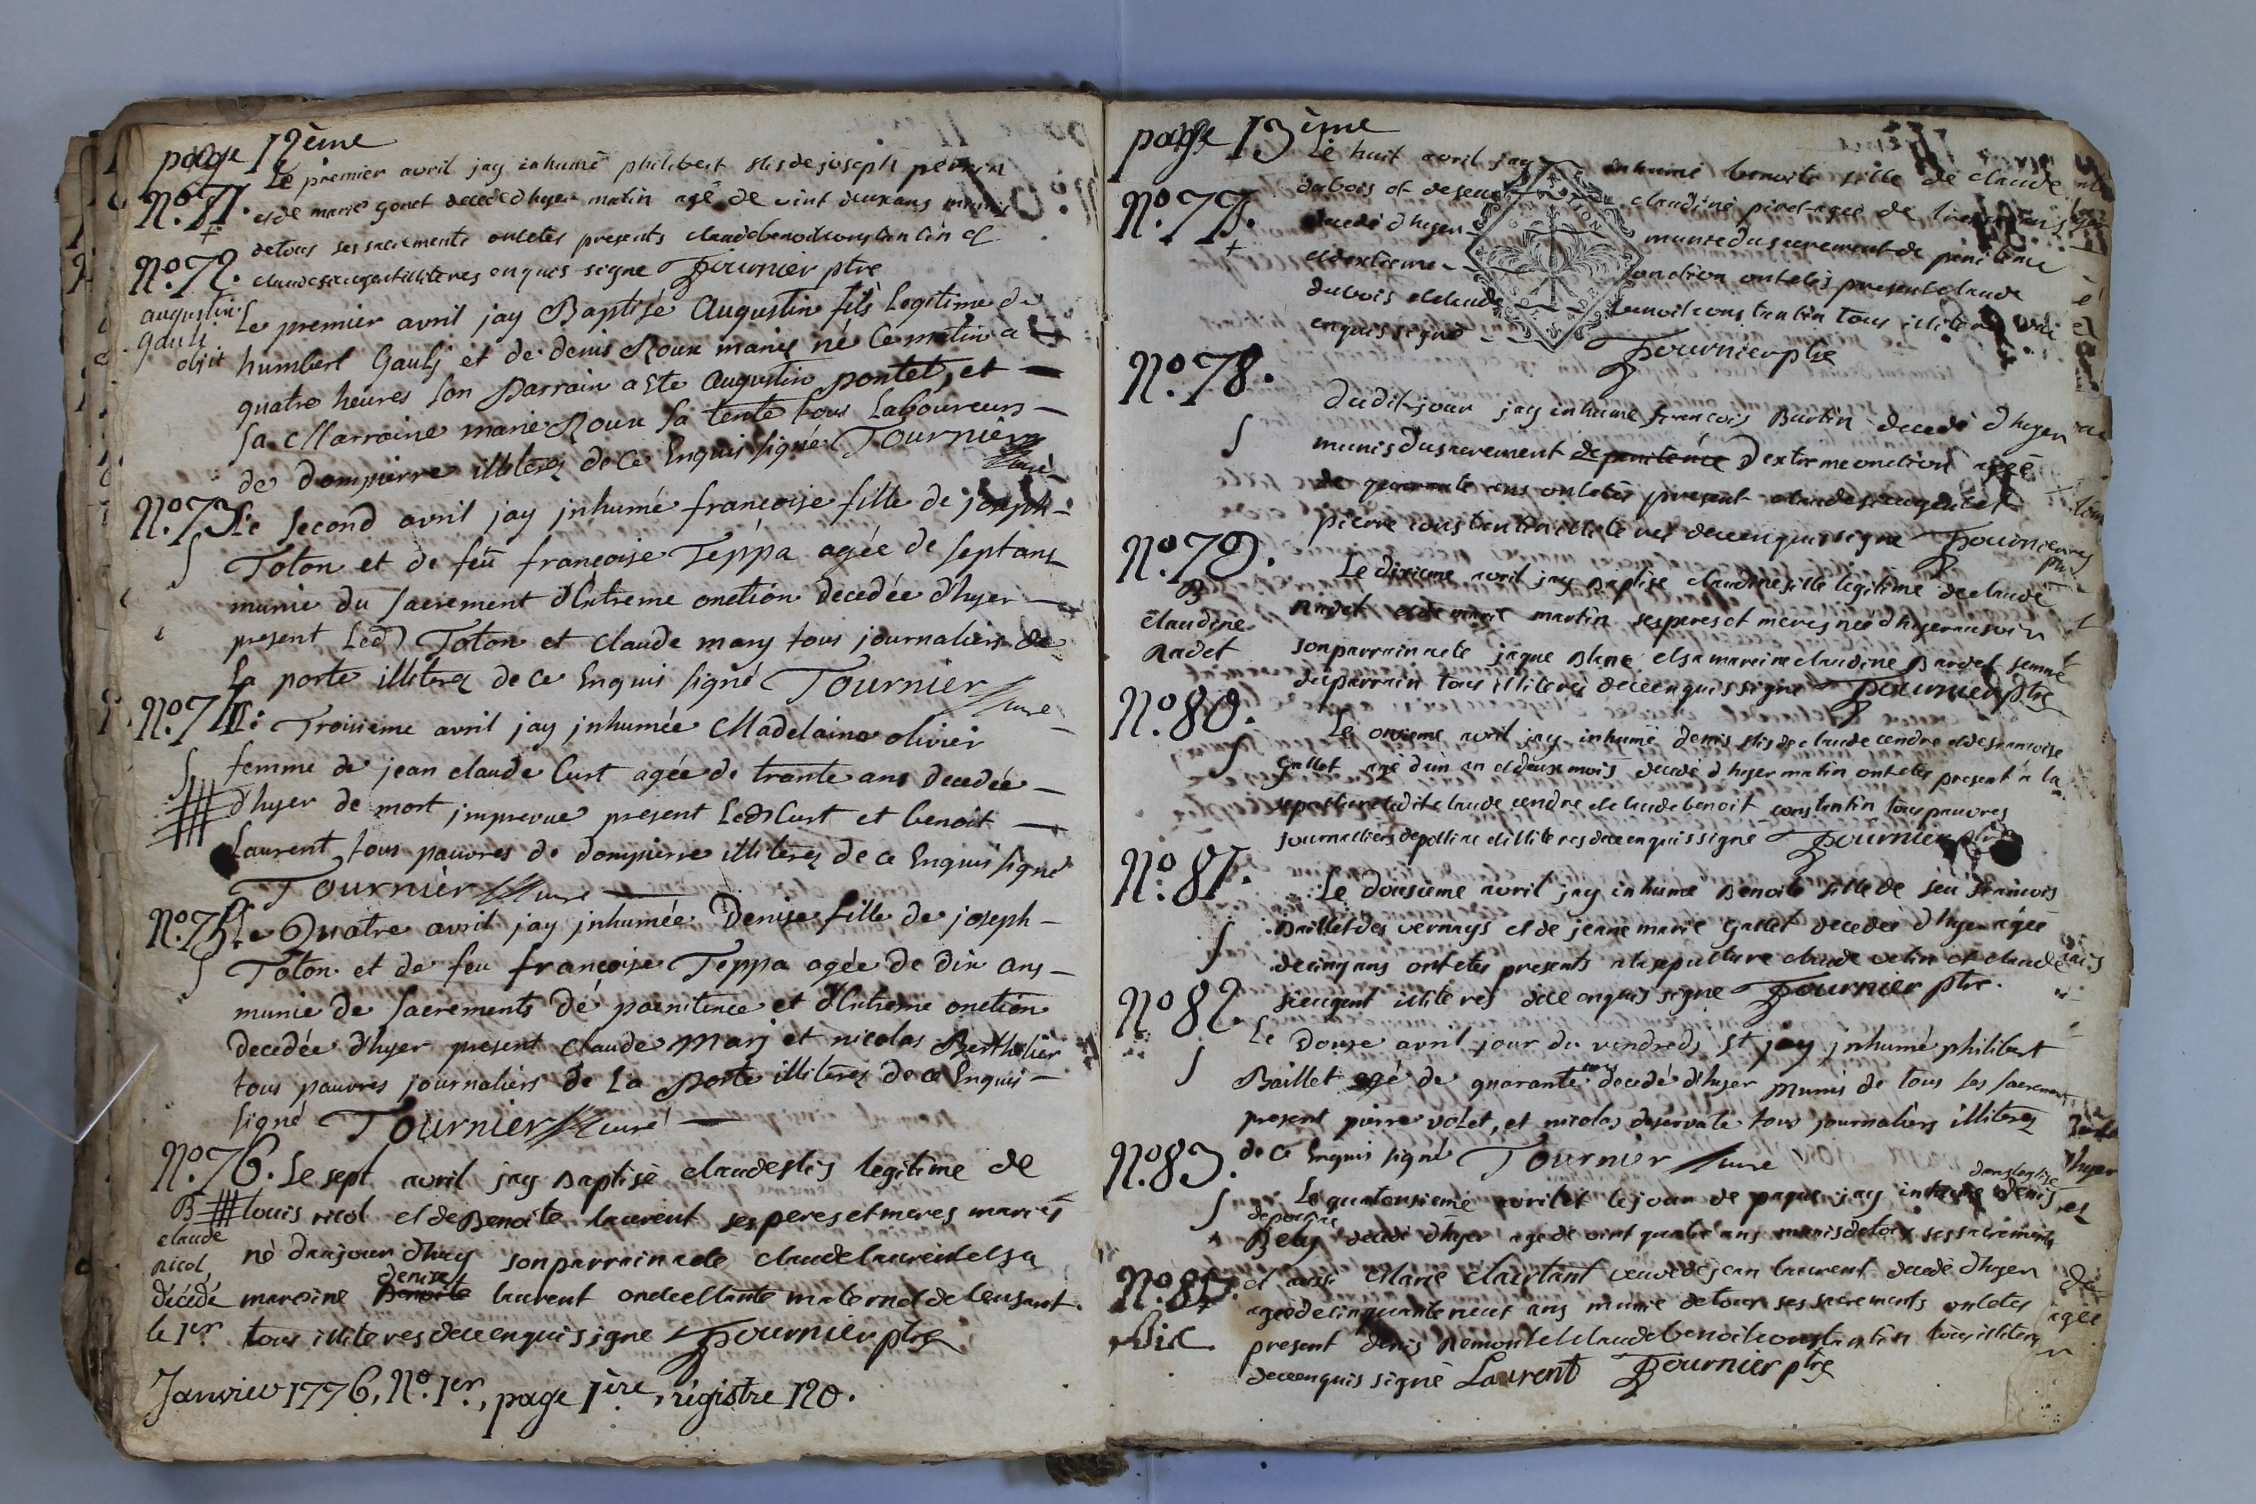 page 12ème
Le premier avril jay inhumé philibert fils de joseph perrin
N.o 71. et de marie gonet decedé dhyer matin agé de vint deux ans munis
detous ses sacrements ontetés presents claude benoit constantin et
N.o 72. claude sieugent illiteres enquis signe Tournier ptre
augustin Le premier avril jay Baptisé Augustin fils Legitime de
Gaulj humbert Gaulj et de denis Roux mariés né Ce matin a
objit quatre heures Son Parrain a Ete Augustin pontet, et
Sa Marraine marie Roux Sa tente tous Laboureurs
de dompierre illiterez de Ce Enquis signé Tournier
curé
N.o 73 Le Second avril jay jnhumé francoise fille de joseph
Toton et de feu françoise Teppa agée de Sept ans
munie du Sacrement dExtreme onction decedée d'hyer
present Led Toton et Claude marj tous journaliers de
La porte illiterez de Ce Enquis signé Tournier curé
N.o 74 Le Troisieme avril jay jnhumée Madelaine olivier
femme de jean claude Curt agée de trante ans decedée
d'hyer de mort jmprevue present Led Curt et benoit
Laurent tous pauvres de dompierre illiterez de ce Enquis signé
Tournier curé
N.o 75 Le Quatre avril jay jnhumée Denise fille de joseph
Toton et de feu françoise Teppa agée de dix ans
munie de Sacrements de poenitence et dExtreme onction
decedée d'hyer present Claude Marj et nicolas Bertholier
tous pauvres journaliers de La Porte illiterez de Ce Enquis
signé Tournier curé
N.o 76. Le sept avril jay Baptisé claude fils legitime de
B louis nicol et de Benoite laurent ses peres et meres mariés
claude
nicol né daujourdhuy son parrain a ete claude laurent et sa
décédé mareine Benoite denise laurent oncle et tante maternel de lensant.
le 1er tous illiteres de ce enquis signe Tournier ptre
Janvier 1776, N.o 1er, page 1ère, régistre 120.
page 13ème
Le huit avril jay inhumé benoite fille de claude
N.o 77. dubois et de feue claudine agée de
decedé dhyer munie du sacrement de penitence
et dextreme onction ontetés present claude
dubois et claude benoit constantin tous illiteres
enquis signé
Tournier ptre
N.o 78.
Dudit jour jay inhumé francois Burtin decedé dhyer
munis du sacrement de penitence dextreme onction agée
de quarante ans ontetés present claude sieugent et
pierre constantin illiteres de ce enquis signe Tournier
ptre
N.o 79.
Le dixieme avril jay Baptisé claudine fille legitime de claude
B
claudine Nadet et de marie martin ses peres et meres née dhyer au soir
Nadet son parrain a ete jaque Blanc et sa mareine claudine Bardet femme
du parrain tous illiteres de ce enquis signe Tournier ptre
N.o 80.
Le onzieme avril jay inhumé denis fils de claude cendre et de francoise
gallet agé dun an et deux mois decedé dhyer matin ontetés present a la
sepulture ledit claude cendre et claude benoit constantin tous pauvres
journalliers de et illiteres de ce enquis signe Tournier ptre
N.o 81.
Le dousieme avril jay inhumé Benoite fille de feu francois
Baillet des vernays et de jeane marie gallet decedee dhyer agée
de cinq ans ontetés presents a la sepulture claude velin et claude
N.o 82. sieugent illiteres de ce enquis signe Tournier ptre.
Le Douze avril jour du vendredy St jay jnhumé philibert
Baillet agé de quarante ans decedé d'hyer Munis de tous les Sacrements
present pierre volet, et nicolas deservate tous journaliers illiterez
N.o 83. de Ce Enquis signé Tournier curé
dans leglise
Le quatorsieme avril et le jour de paque jay inhumé denis
Bely decedé dhyer agé de vint quatre ans munis de tous ses sacrements
N.o 83. et aussi Marie Claurtant veuve de jean laurent decedé dhyer
Bis agée de cinquante neuf ans munie de tous ses sacrements ontetés
present denis Remont et claude benoit constantin tous illiteres
de ce enquis signé Laurent Tournier ptre